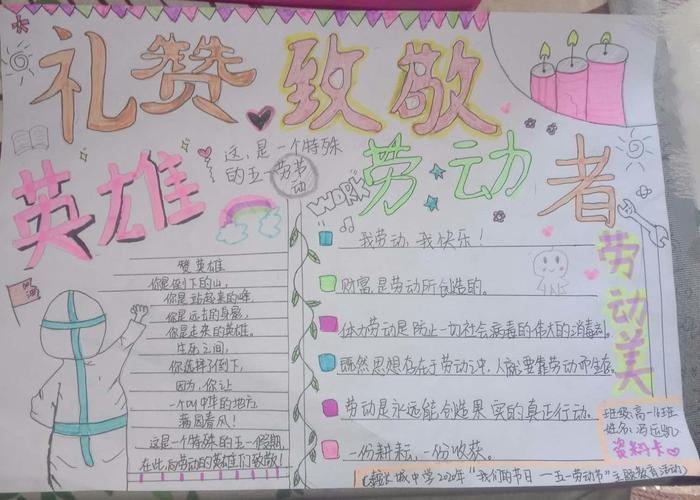 礼赞 致敬
英雄 劳动者
这,是一个特殊
的五一劳节
动
WORK
赞英雄
你是倒下的山,
你是站起来的峰,
你是远去的身影,
你是走来的英雄。
生死之间,
你选择了倒下,
因为,你让
一个叫中华的地方
满园春风!
这是一个特殊的五一假期,
在此,向劳动的英雄们致敬!
我劳动,我快乐!
财富是劳动所创造的。
体力劳动是防止一切社会病毒的伟大的消毒剂。
既然思想存在于劳动之中,人就要靠劳动而生存。
劳动是永远能创造果实的真正行动。
一份耕耘,一份收获。
劳动美
班级:高一
姓名:冯
资料卡
城中学
“我们的节日——五一劳动节”主题教育活动